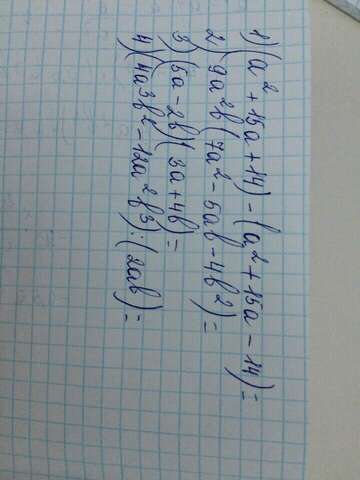 1) (a² + 15a + 14) - (a² + 15a - 14) =
2) 9a²b (7a² - 5ab - 4b²) =
3) (5a - 2b)(3a + 4b) =
4) (4a³b² - 12a²b³) : (2ab) =